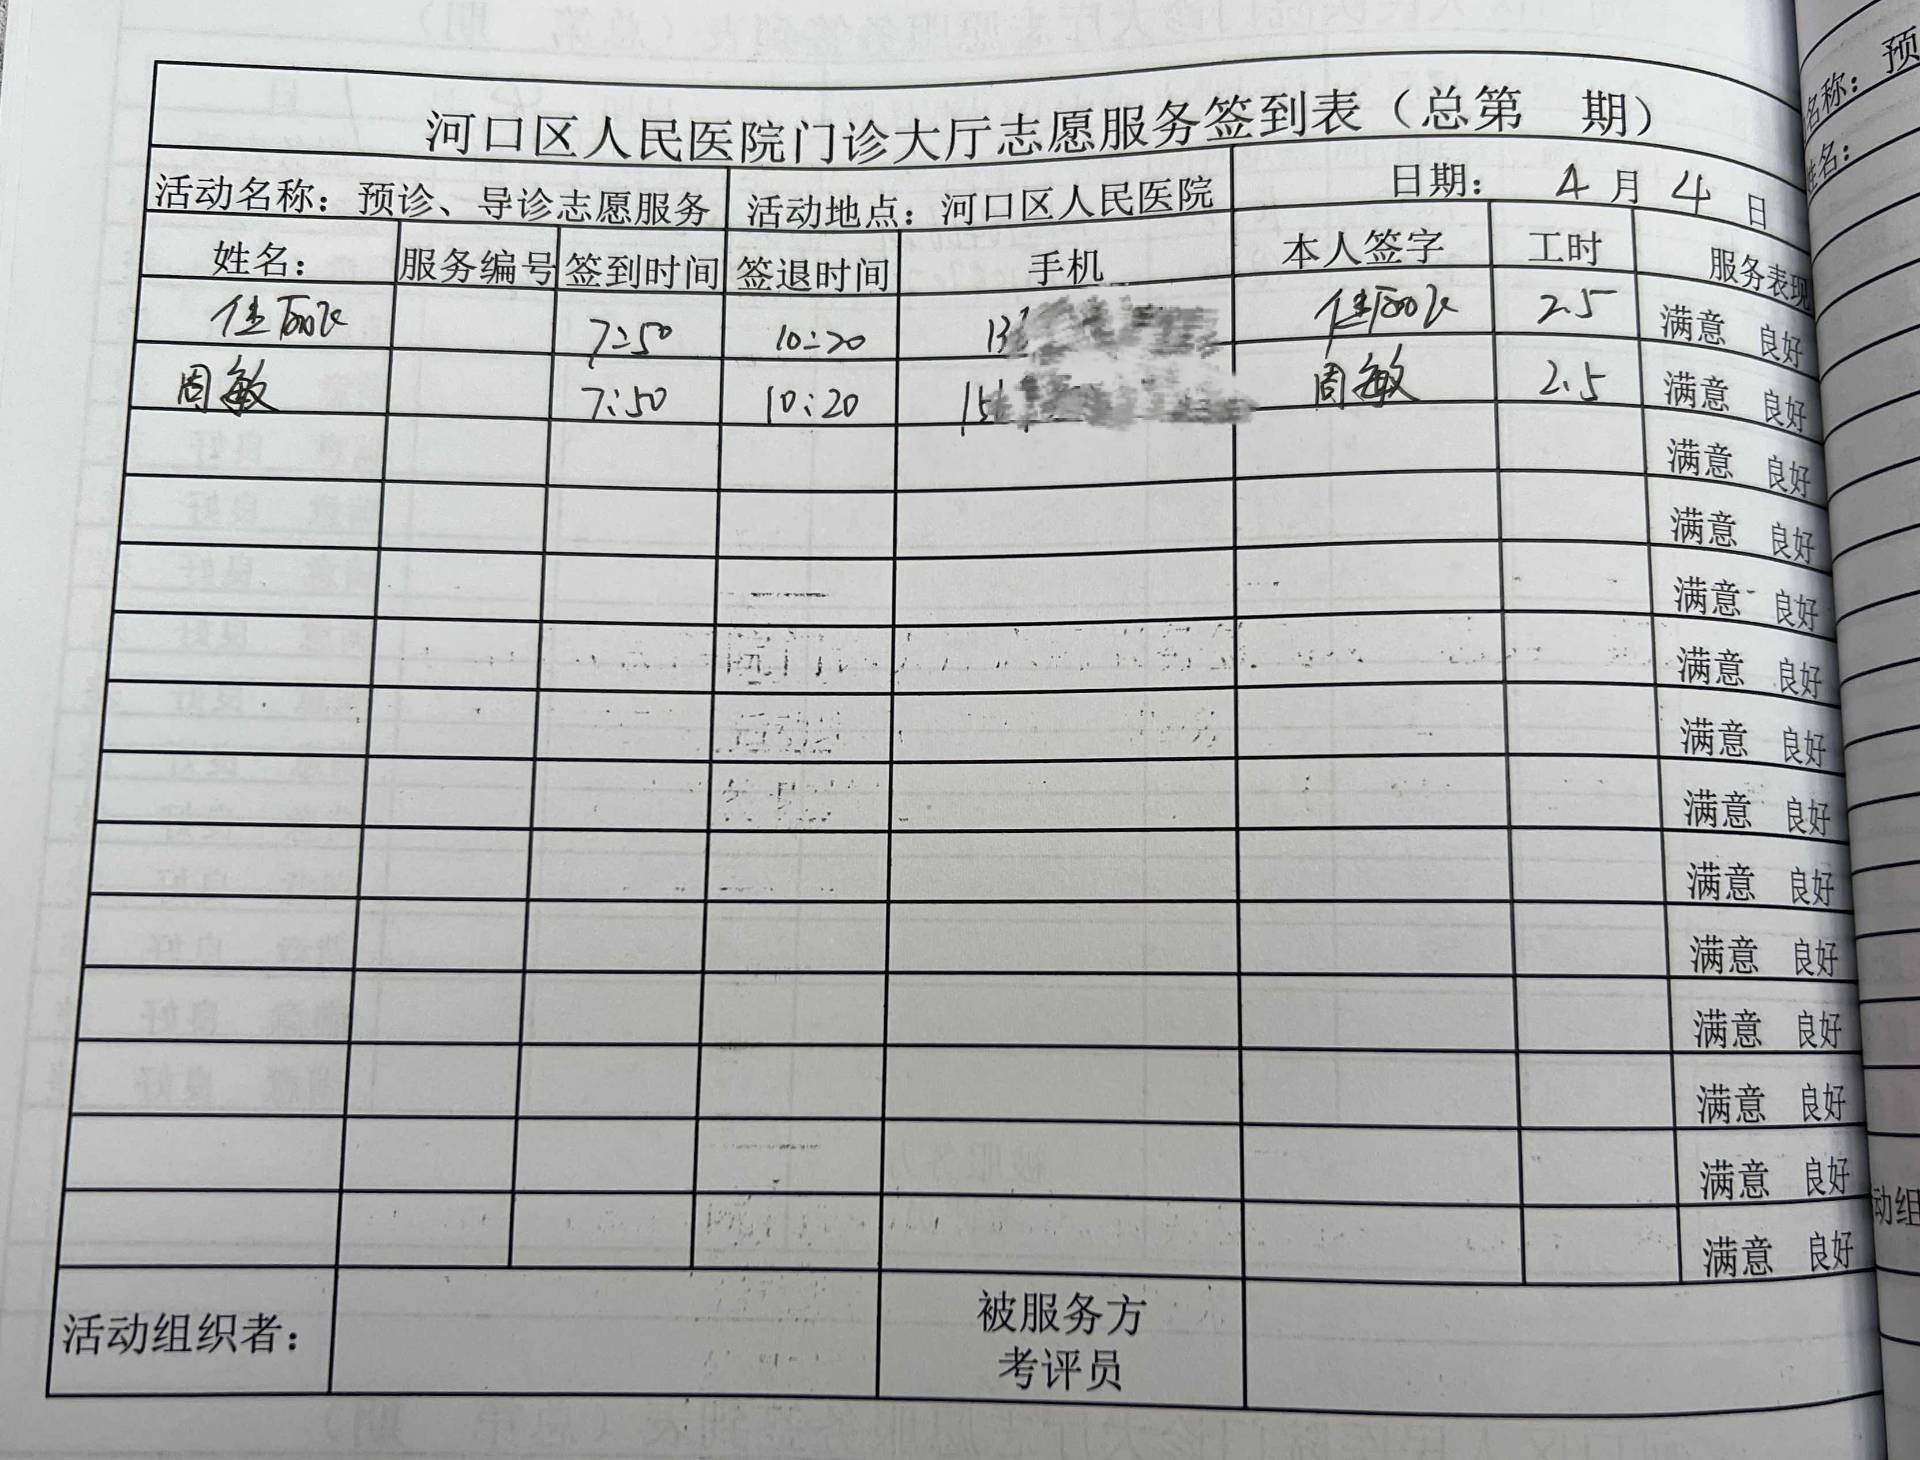 河口区人民医院门诊大厅志愿服务签到表（总第 期）
活动名称：预诊、导诊志愿服务 活动地点：河口区人民医院 日期：4月4日
姓名： 服务编号 签到时间 签退时间 手机 本人签字 工时 服务表现
7:50 10:20 2.5 满意 良好
周敏 7:50 10:20 周敏 2.5 满意 良好
满意 良好
满意 良好
满意 良好
满意 良好
满意 良好
满意 良好
满意 良好
满意 良好
满意 良好
满意 良好
满意 良好
满意 良好
活动组织者： 被服务方
考评员
名称：预
姓名：
动组